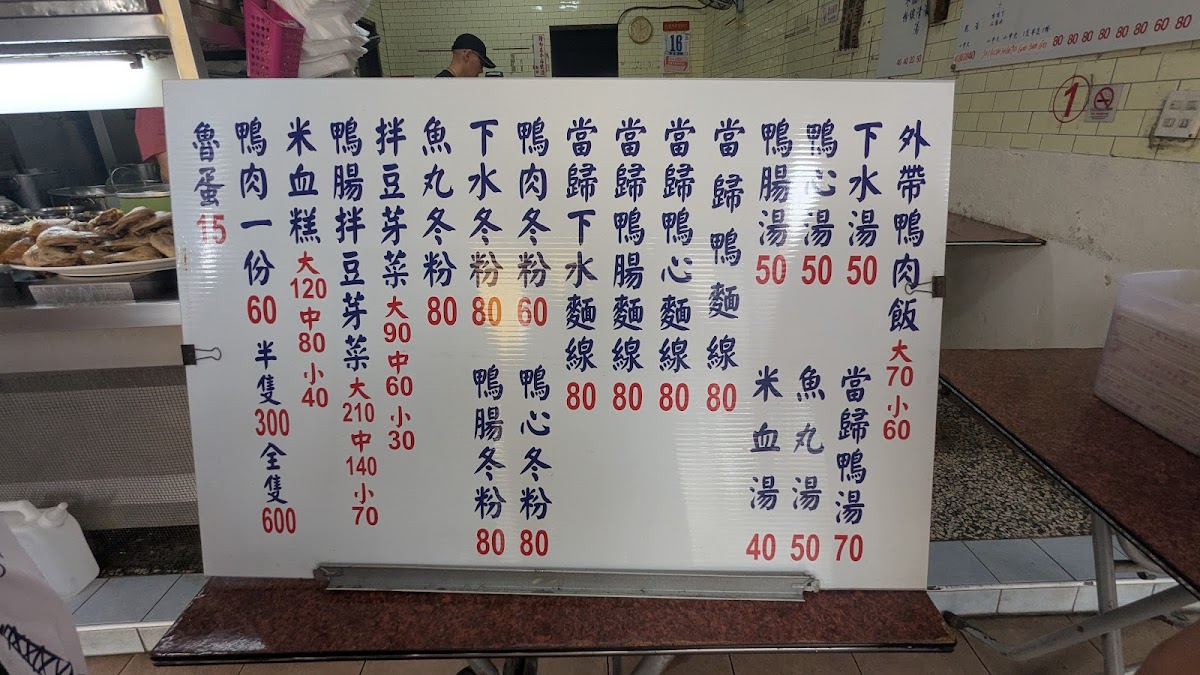 外帶鴨肉飯 大70 小60
下水湯 50
當歸鴨湯 70
鴨心湯 50
魚丸湯 50
鴨腸湯 50
米血湯 40
當歸鴨麵線 80
當歸鴨心麵線 80
當歸鴨腸麵線 80
當歸下水麵線 80
鴨肉冬粉 60
鴨心冬粉 80
下水冬粉 80
鴨腸冬粉 80
魚丸冬粉 80
拌豆芽菜 大90 中60 小30
鴨腸拌豆芽菜 大210 中140 小70
米血糕 大120 中80 小40
鴨肉一份 60 半隻300 全隻600
魯蛋 15
16
1
80 80 80 80 80 80 60 80